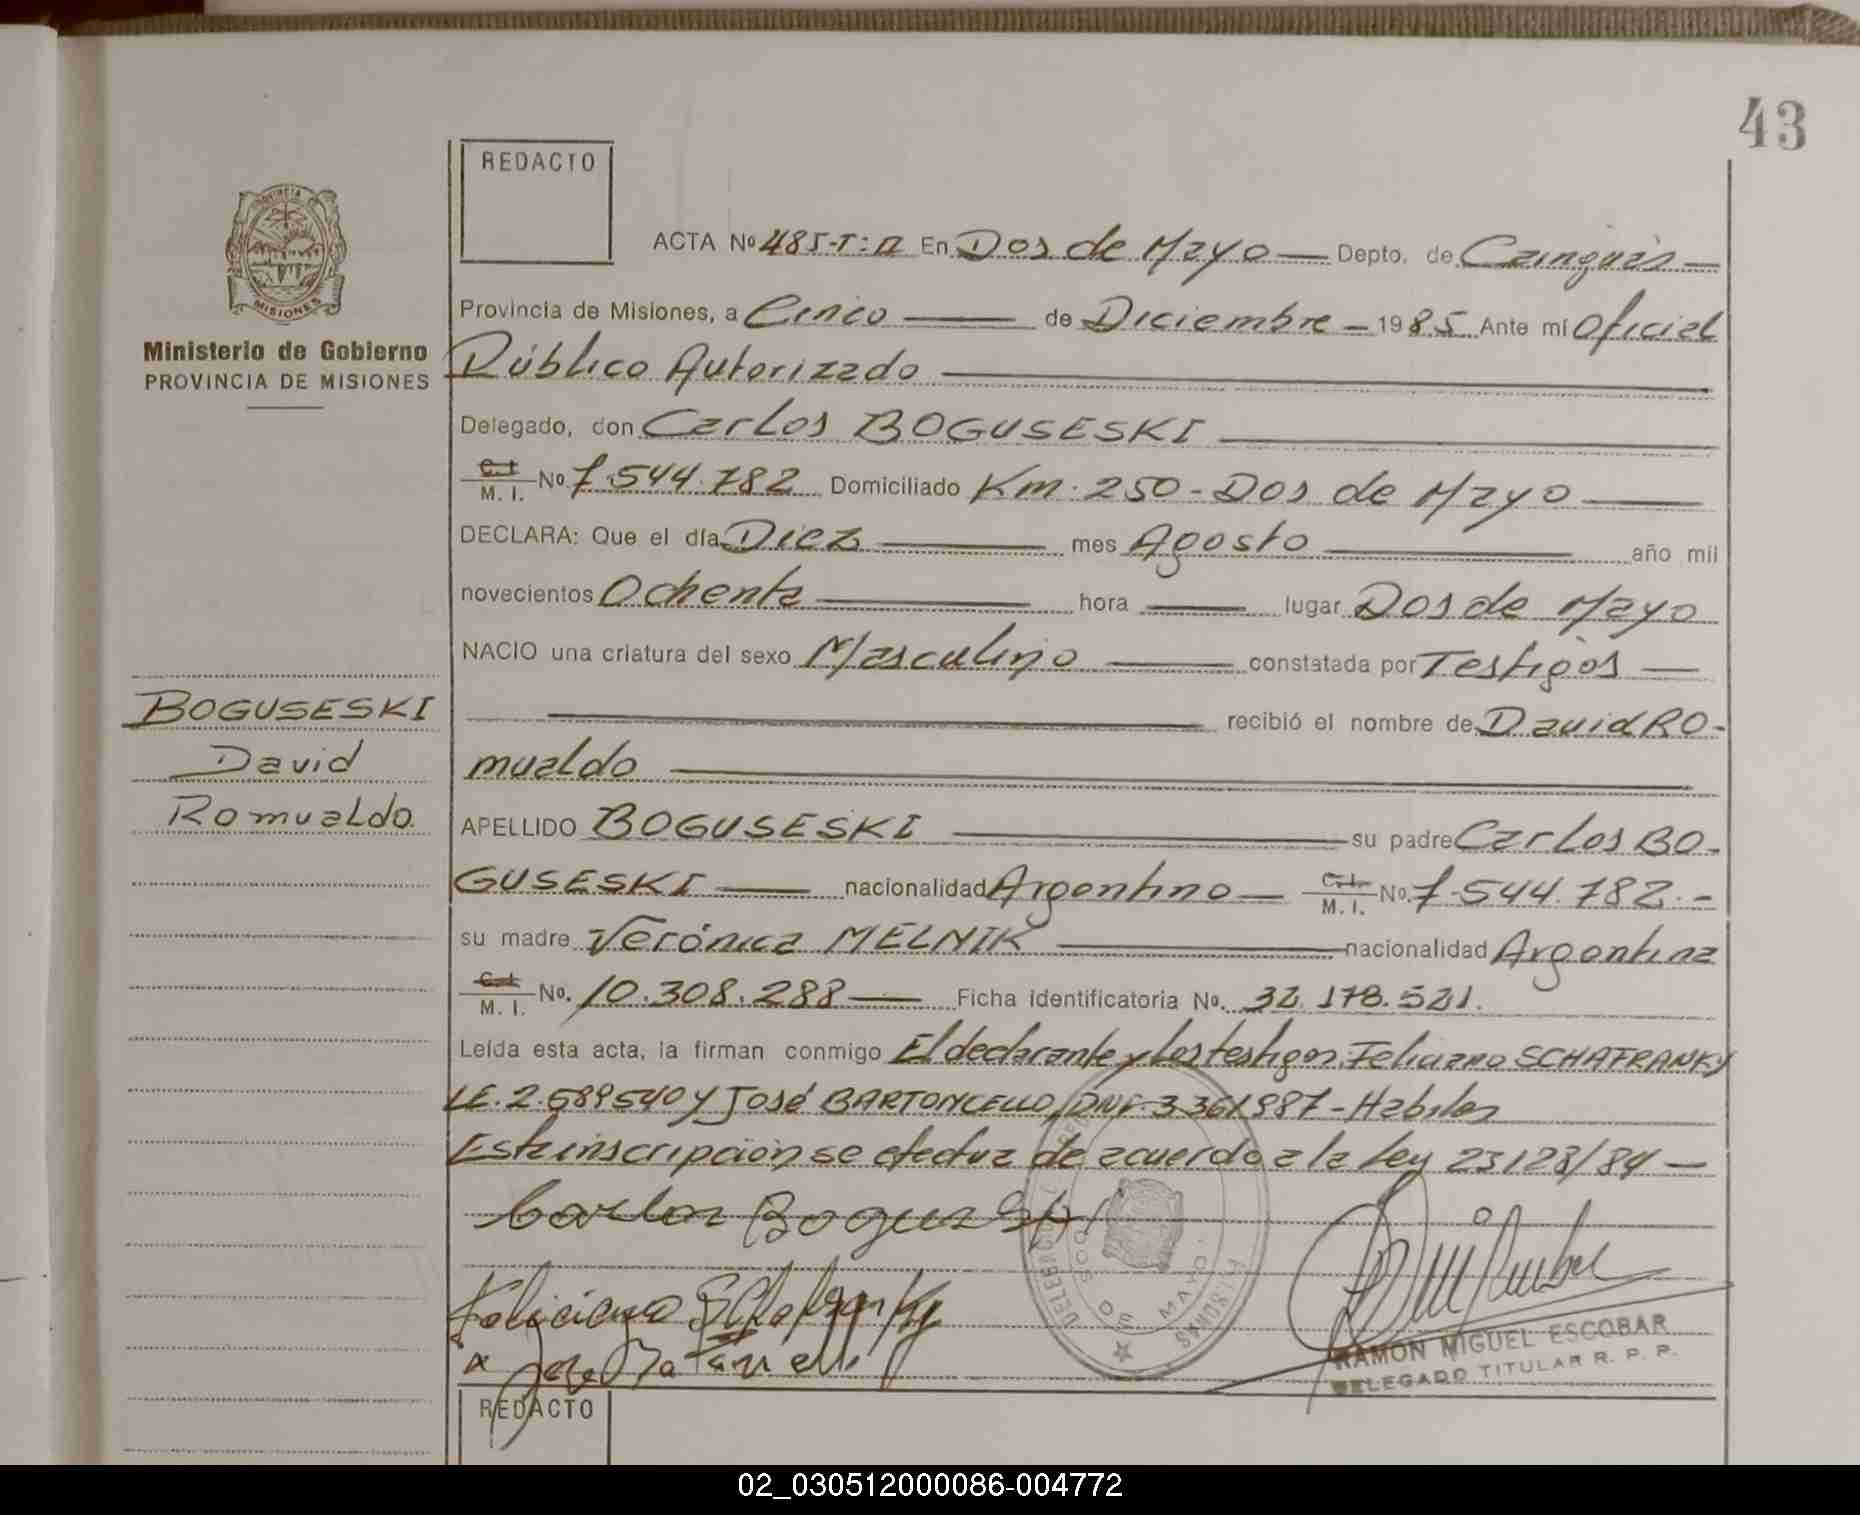 43
REDACTO
ACTA Nº 485-T:II En Dos de Mayo — Depto. de Cainguás —
Provincia de Misiones, a Cinco — de Diciembre — 1985 Ante mí Oficial
Público Autorizado
Ministerio de Gobierno
PROVINCIA DE MISIONES
Delegado, don Carlos BOGUSESKI
C.I. M. I. Nº 7.544.782 Domiciliado Km. 250 - Dos de Mayo
DECLARA: Que el día Diez mes Agosto año mil
novecientos Ochenta hora — lugar Dos de Mayo
NACIO una criatura del sexo Masculino constatada por Testigos —
recibió el nombre de David RO-
mualdo
BOGUSESKI
David
Romualdo.
APELLIDO BOGUSESKI su padre Carlos BO-
GUSESKI nacionalidad Argentino — C.I. M. I. Nº 7.544.782.-
su madre Verónica MELNIK nacionalidad Argentina
C.I. M. I. No. 10.308.288 — Ficha identificatoria No. 32.178.521.
Leída esta acta, la firman conmigo El declarante y los testigos: Feliciano SCHAFRANKY
LE. 2.689540 y José BARTONCELLO, DNI. 3.361987 - Habiles
Esta inscripción se efectua de acuerdo a la Ley 23128/84 —
Carlos Boguseski
Feliciano Schafranky
DOS DE MAYO
RAMON MIGUEL ESCOBAR
DELEGADO TITULAR R. P. P.
REDACTO
02_030512000086-004772